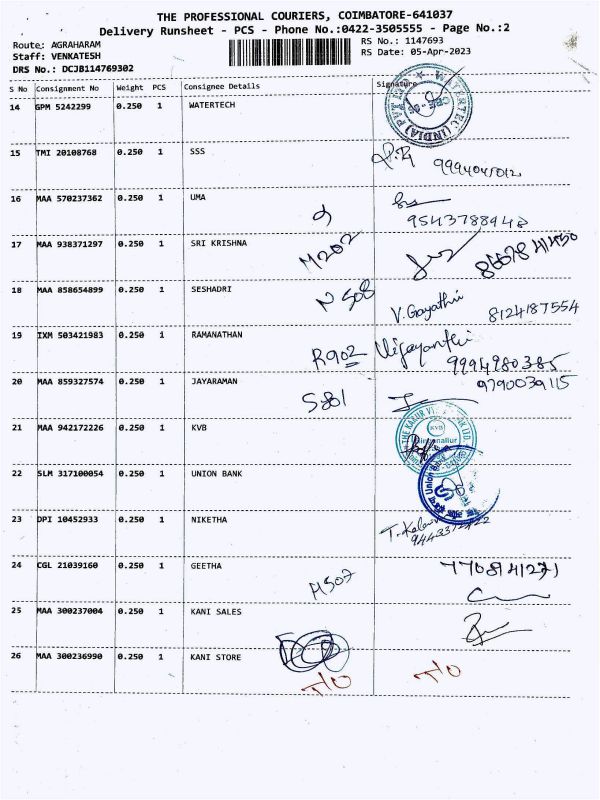 THE PROFESSIONAL COURIERS, COIMBATORE-641037
Delivery Runsheet - PCS - Phone No.:0422-3505555 - Page No.:2
Route: AGRAHARAM RS No.: 1147693
Staff: VENKATESH RS Date: 05-Apr-2023
DRS No.: DCJB114769302
S No Consignment No Weight PCS Consignee Details Signature
14 GPM 5242299 0.250 1 WATERTECH WATERTEC (INDIA) PVT
15 TMI 20108768 0.250 1 SSS
16 MAA 570237362 0.250 1 UMA 9543788948
17 MAA 938371297 0.250 1 SRI KRISHNA M202
18 MAA 858654899 0.250 1 SESHADRI N508 V. Gayathri 8124187554
19 IXM 503421983 0.250 1 RAMANATHAN R902 Vijayanthi 9994980385
20 MAA 859327574 0.250 1 JAYARAMAN S801 9790039115
21 MAA 942172226 0.250 1 KVB THE KARUR KVB
22 SLM 317100054 0.250 1 UNION BANK Union Bank
23 DPI 10452933 0.250 1 NIKETHA
24 CGL 21039160 0.250 1 GEETHA M507 7708141271
25 MAA 300237004 0.250 1 KANI SALES
26 MAA 300236990 0.250 1 KANI STORE T/O T/O